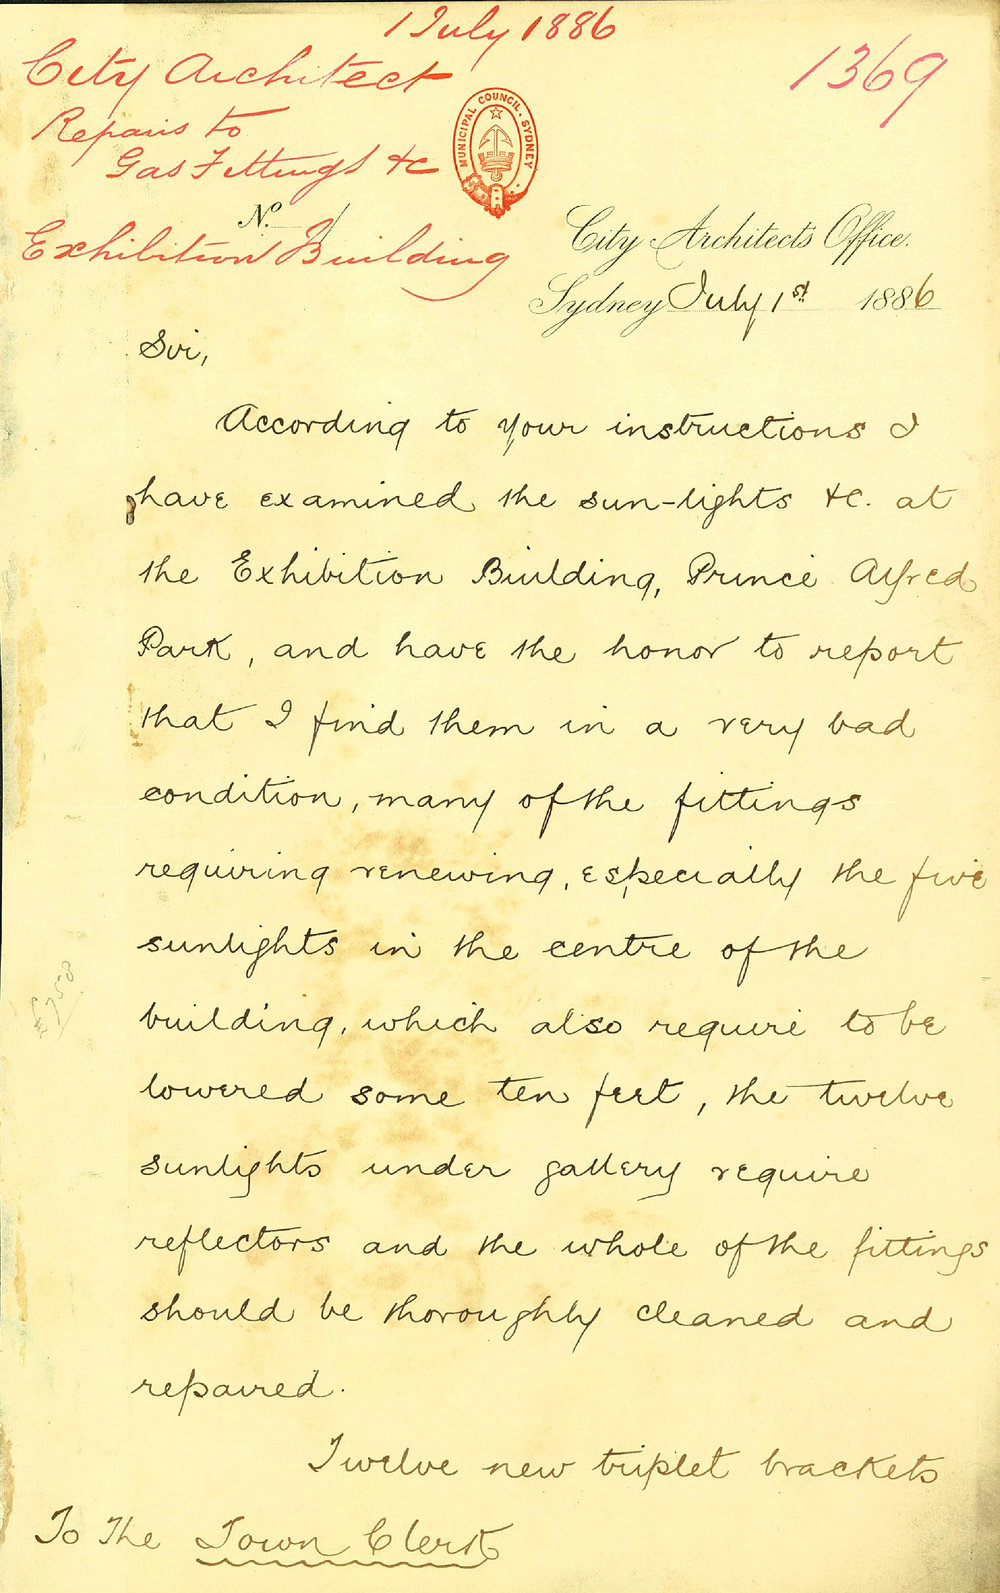 1 July 1886
City Architect
1369
Repairs to
Gas Fittings &c
MUNICIPAL COUNCIL. SYDNEY
No.
Exhibition Building
City Architects Office.
Sydney July 1st. 1886
Sir,
According to your instructions I
have examined the sun-lights &c. at
the Exhibition Building, Prince Alfred
Park, and have the honor to report
that I find them in a very bad
condition, many of the fittings
requiring renewing, especially the five
sunlights in the centre of the
building, which also require to be
lowered some ten feet, the twelve
sunlights under gallery require
reflectors and the whole of the fittings
should be thoroughly cleaned and
repaired.
Twelve new triplet brackets
To The Town Clerk